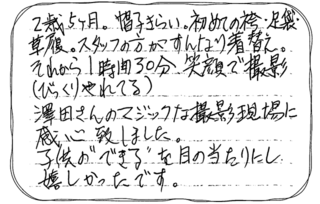 2歳5ヶ月。帽子きらい。初めての袴・足袋
草履。スタッフの方がすんなり着替え。
それから1時間30分 笑顔で撮影
(びっくりやれてる)
澤田さんのマジックな撮影現場に
感心致しました。
子供の"できる"を目の当たりにし
嬉しかったです。